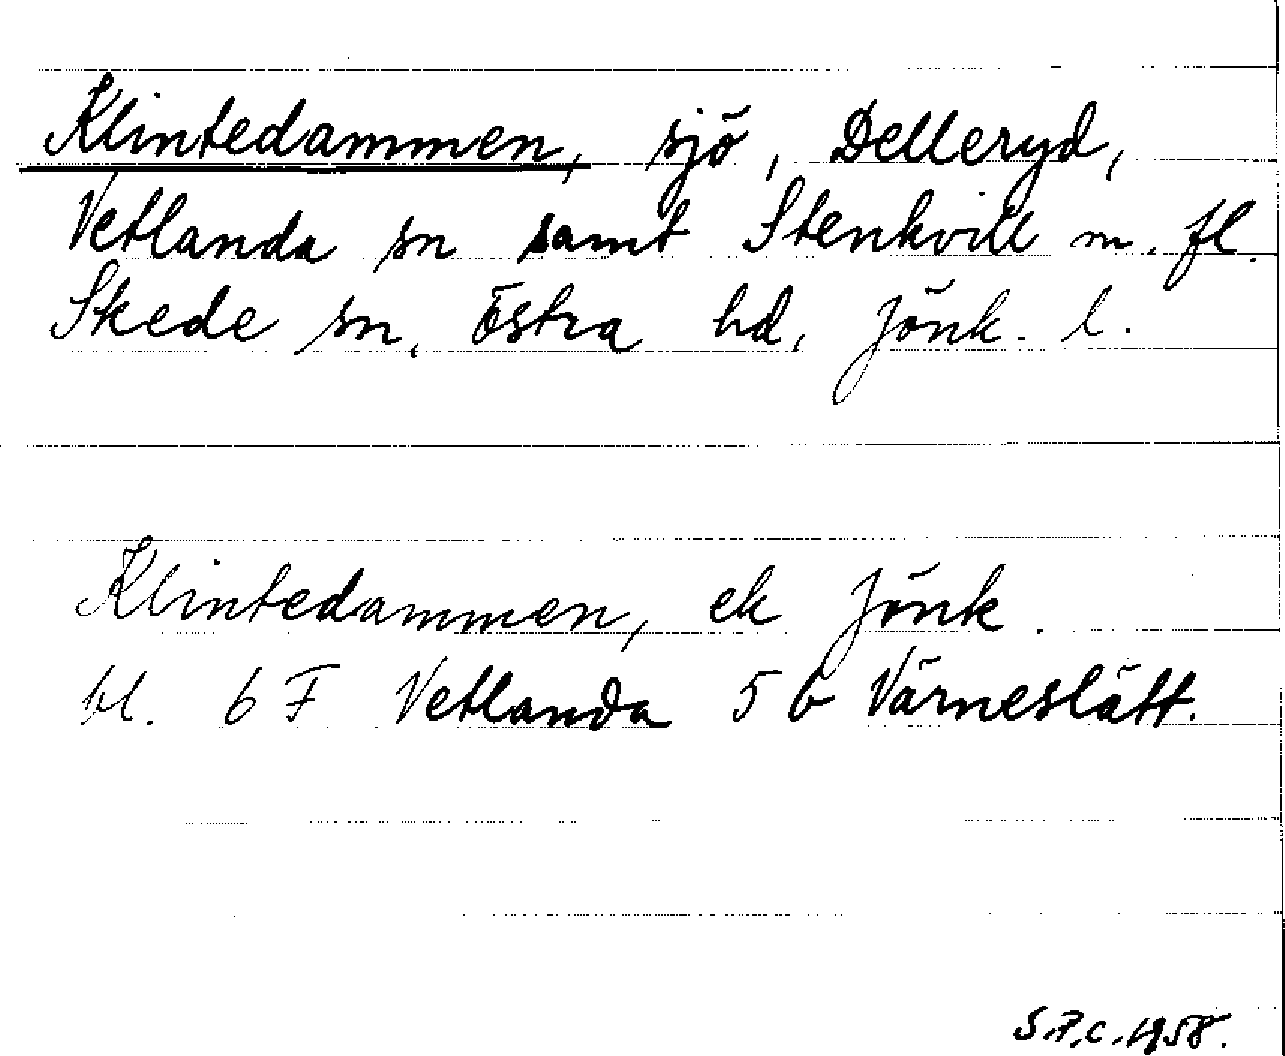 Klintedammen, sjö, Delleryd,
Vetlanda sn samt Stenkvill m. fl.
Skede sn, Östra hd, Jönk. l.
Klintedammen, ek Jönk.
bl. 6 F Vetlanda 5 b Värneslätt.
S.P.C. 1958.